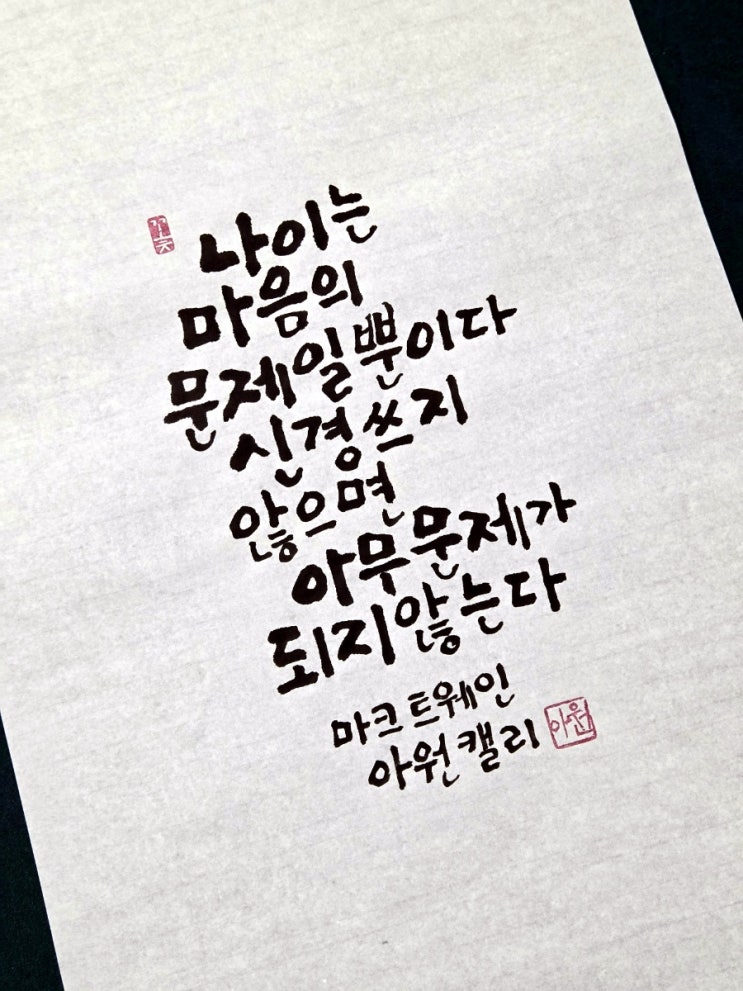 나이는
마음의
문제일뿐이다
신경쓰지
않으면
아무문제가
되지않는다
마크트웨인
아원캘리
아원